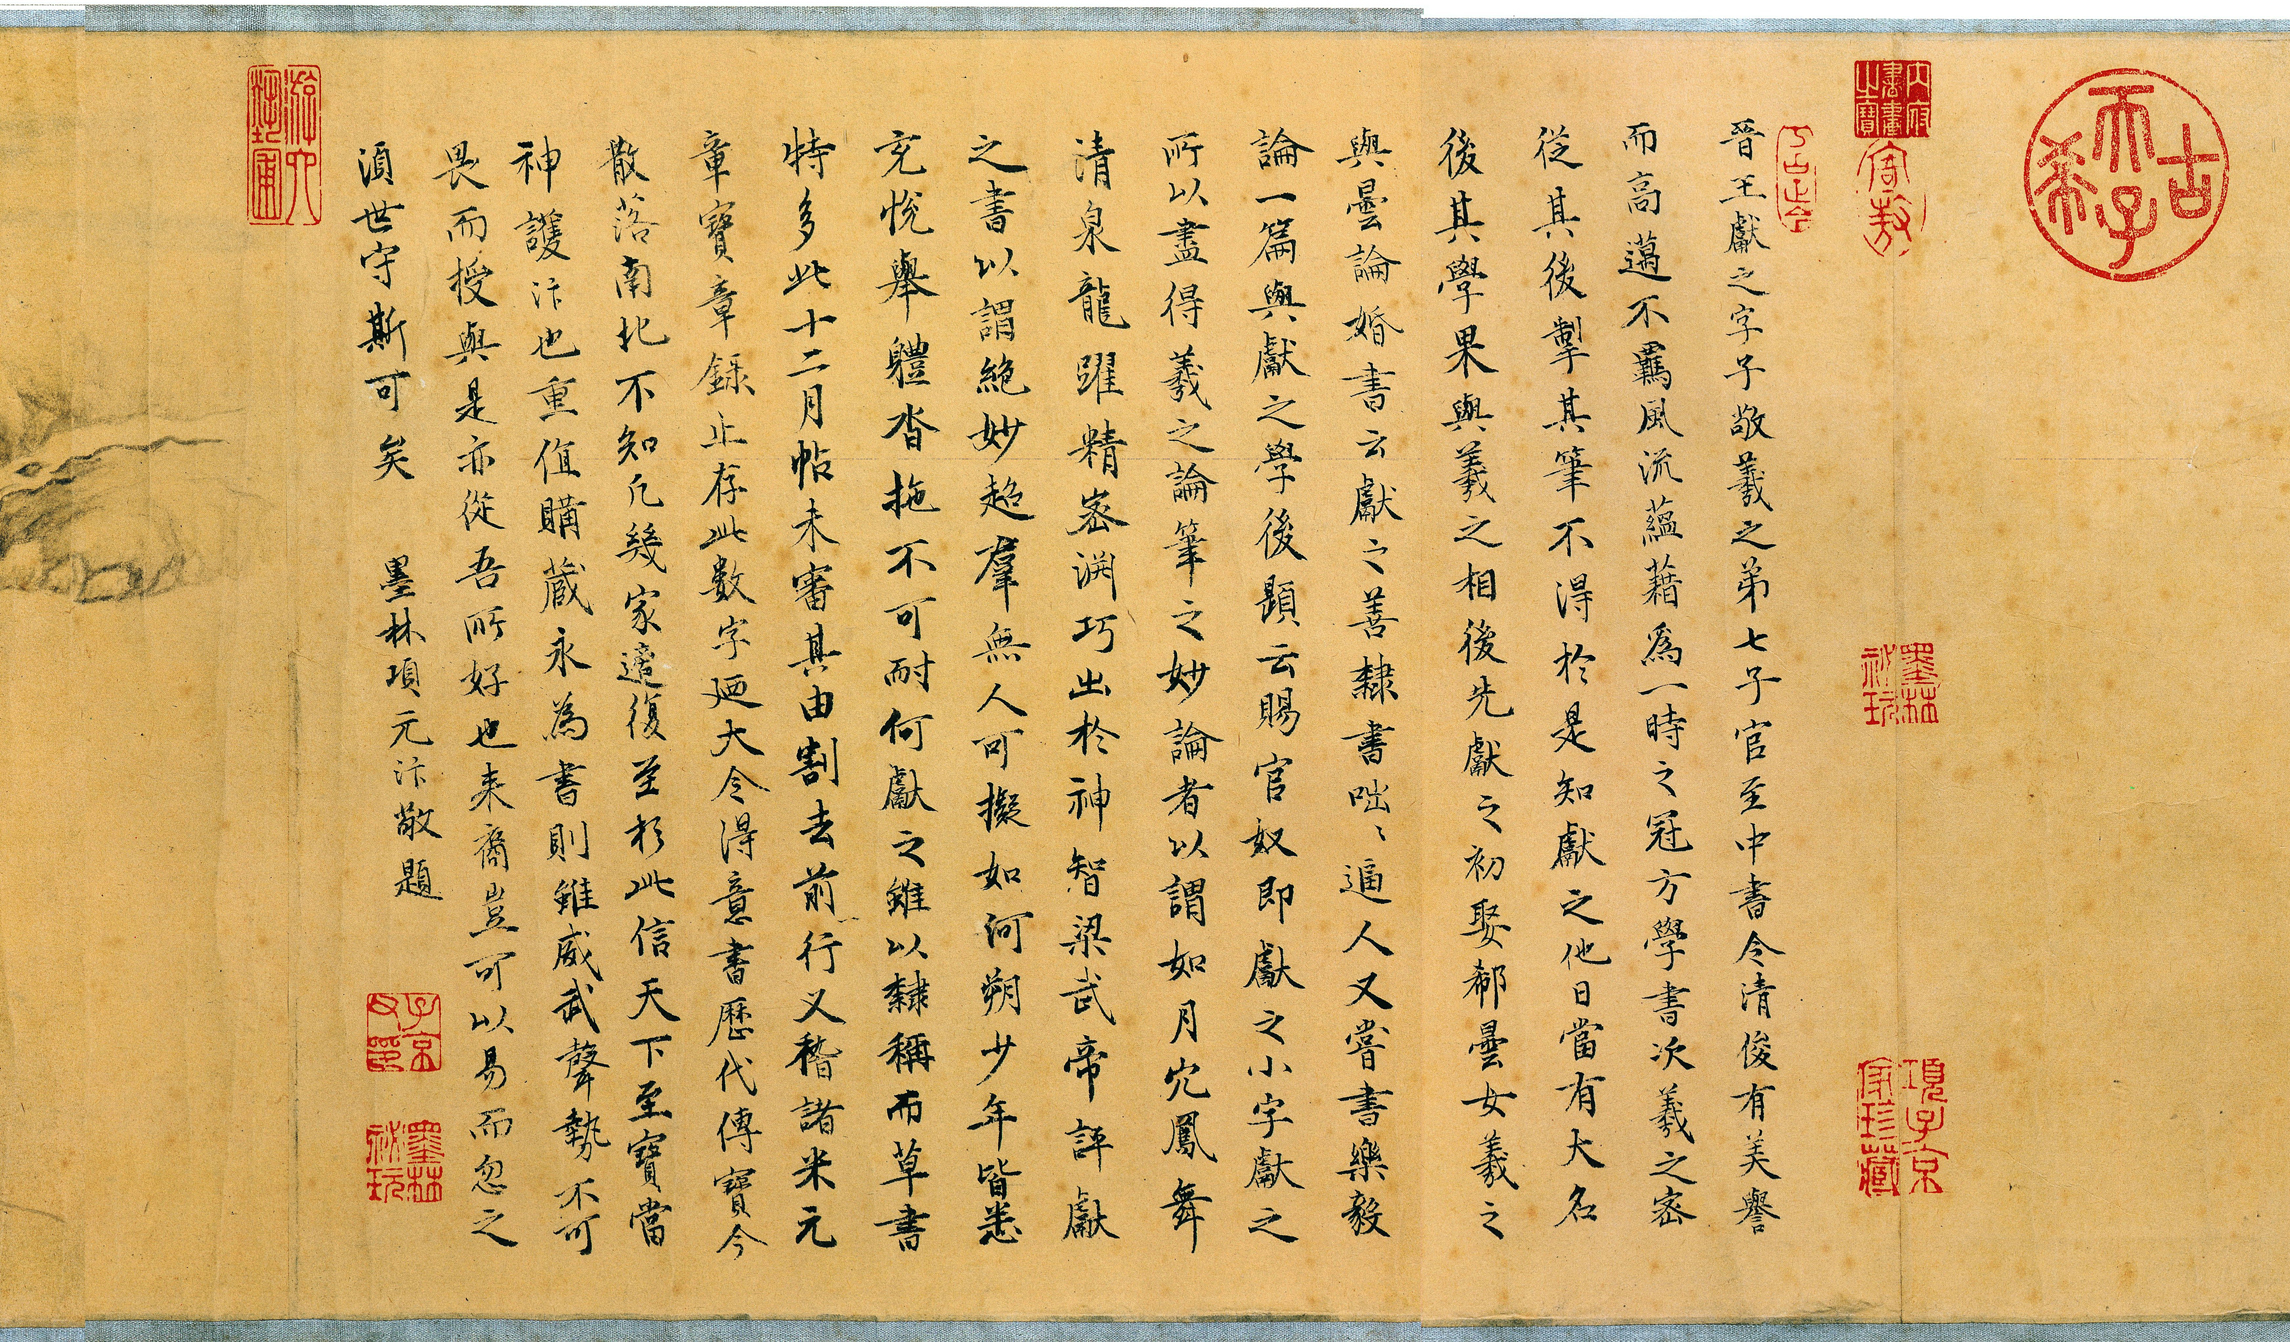 古希天子
內府書畫之寶
晉王獻之字子敬羲之弟七子官至中書令清俊有美譽
而高邁不羈風流蘊藉爲一時之冠方學書次羲之密
從其後掣其筆不得於是知獻之他日當有大名
後其學果與羲之相後先獻之初娶郗曇女羲之
與曇論婚書云獻之善隸書咄〻逼人又嘗書樂毅
論一篇與獻之學後題云賜官奴即獻之小字獻之
所以盡得羲之論筆之妙論者以謂如月穴鳳舞
清泉龍躍精密淵巧出於神智梁武帝評獻
之書以謂絶妙超羣無人可擬如河朔少年皆悉
充悅舉軆沓拖不可耐何獻之雖以隸稱而草書
特多此十二月帖未審其由割去前行又稽諸米元
章寶章錄止存此數字廼大令得意書歷代傳寶今
散落南北不知凡幾家邅復至於此信天下至寶當
神護汴也重值購藏永為書則雖威武聲勢不可
畏而授與是亦從吾所好也来裔豈可以易而忽之
湏世守斯可矣 墨林項元汴敬題
墨林祕玩
項子京家珍藏
子京父印
墨林祕玩